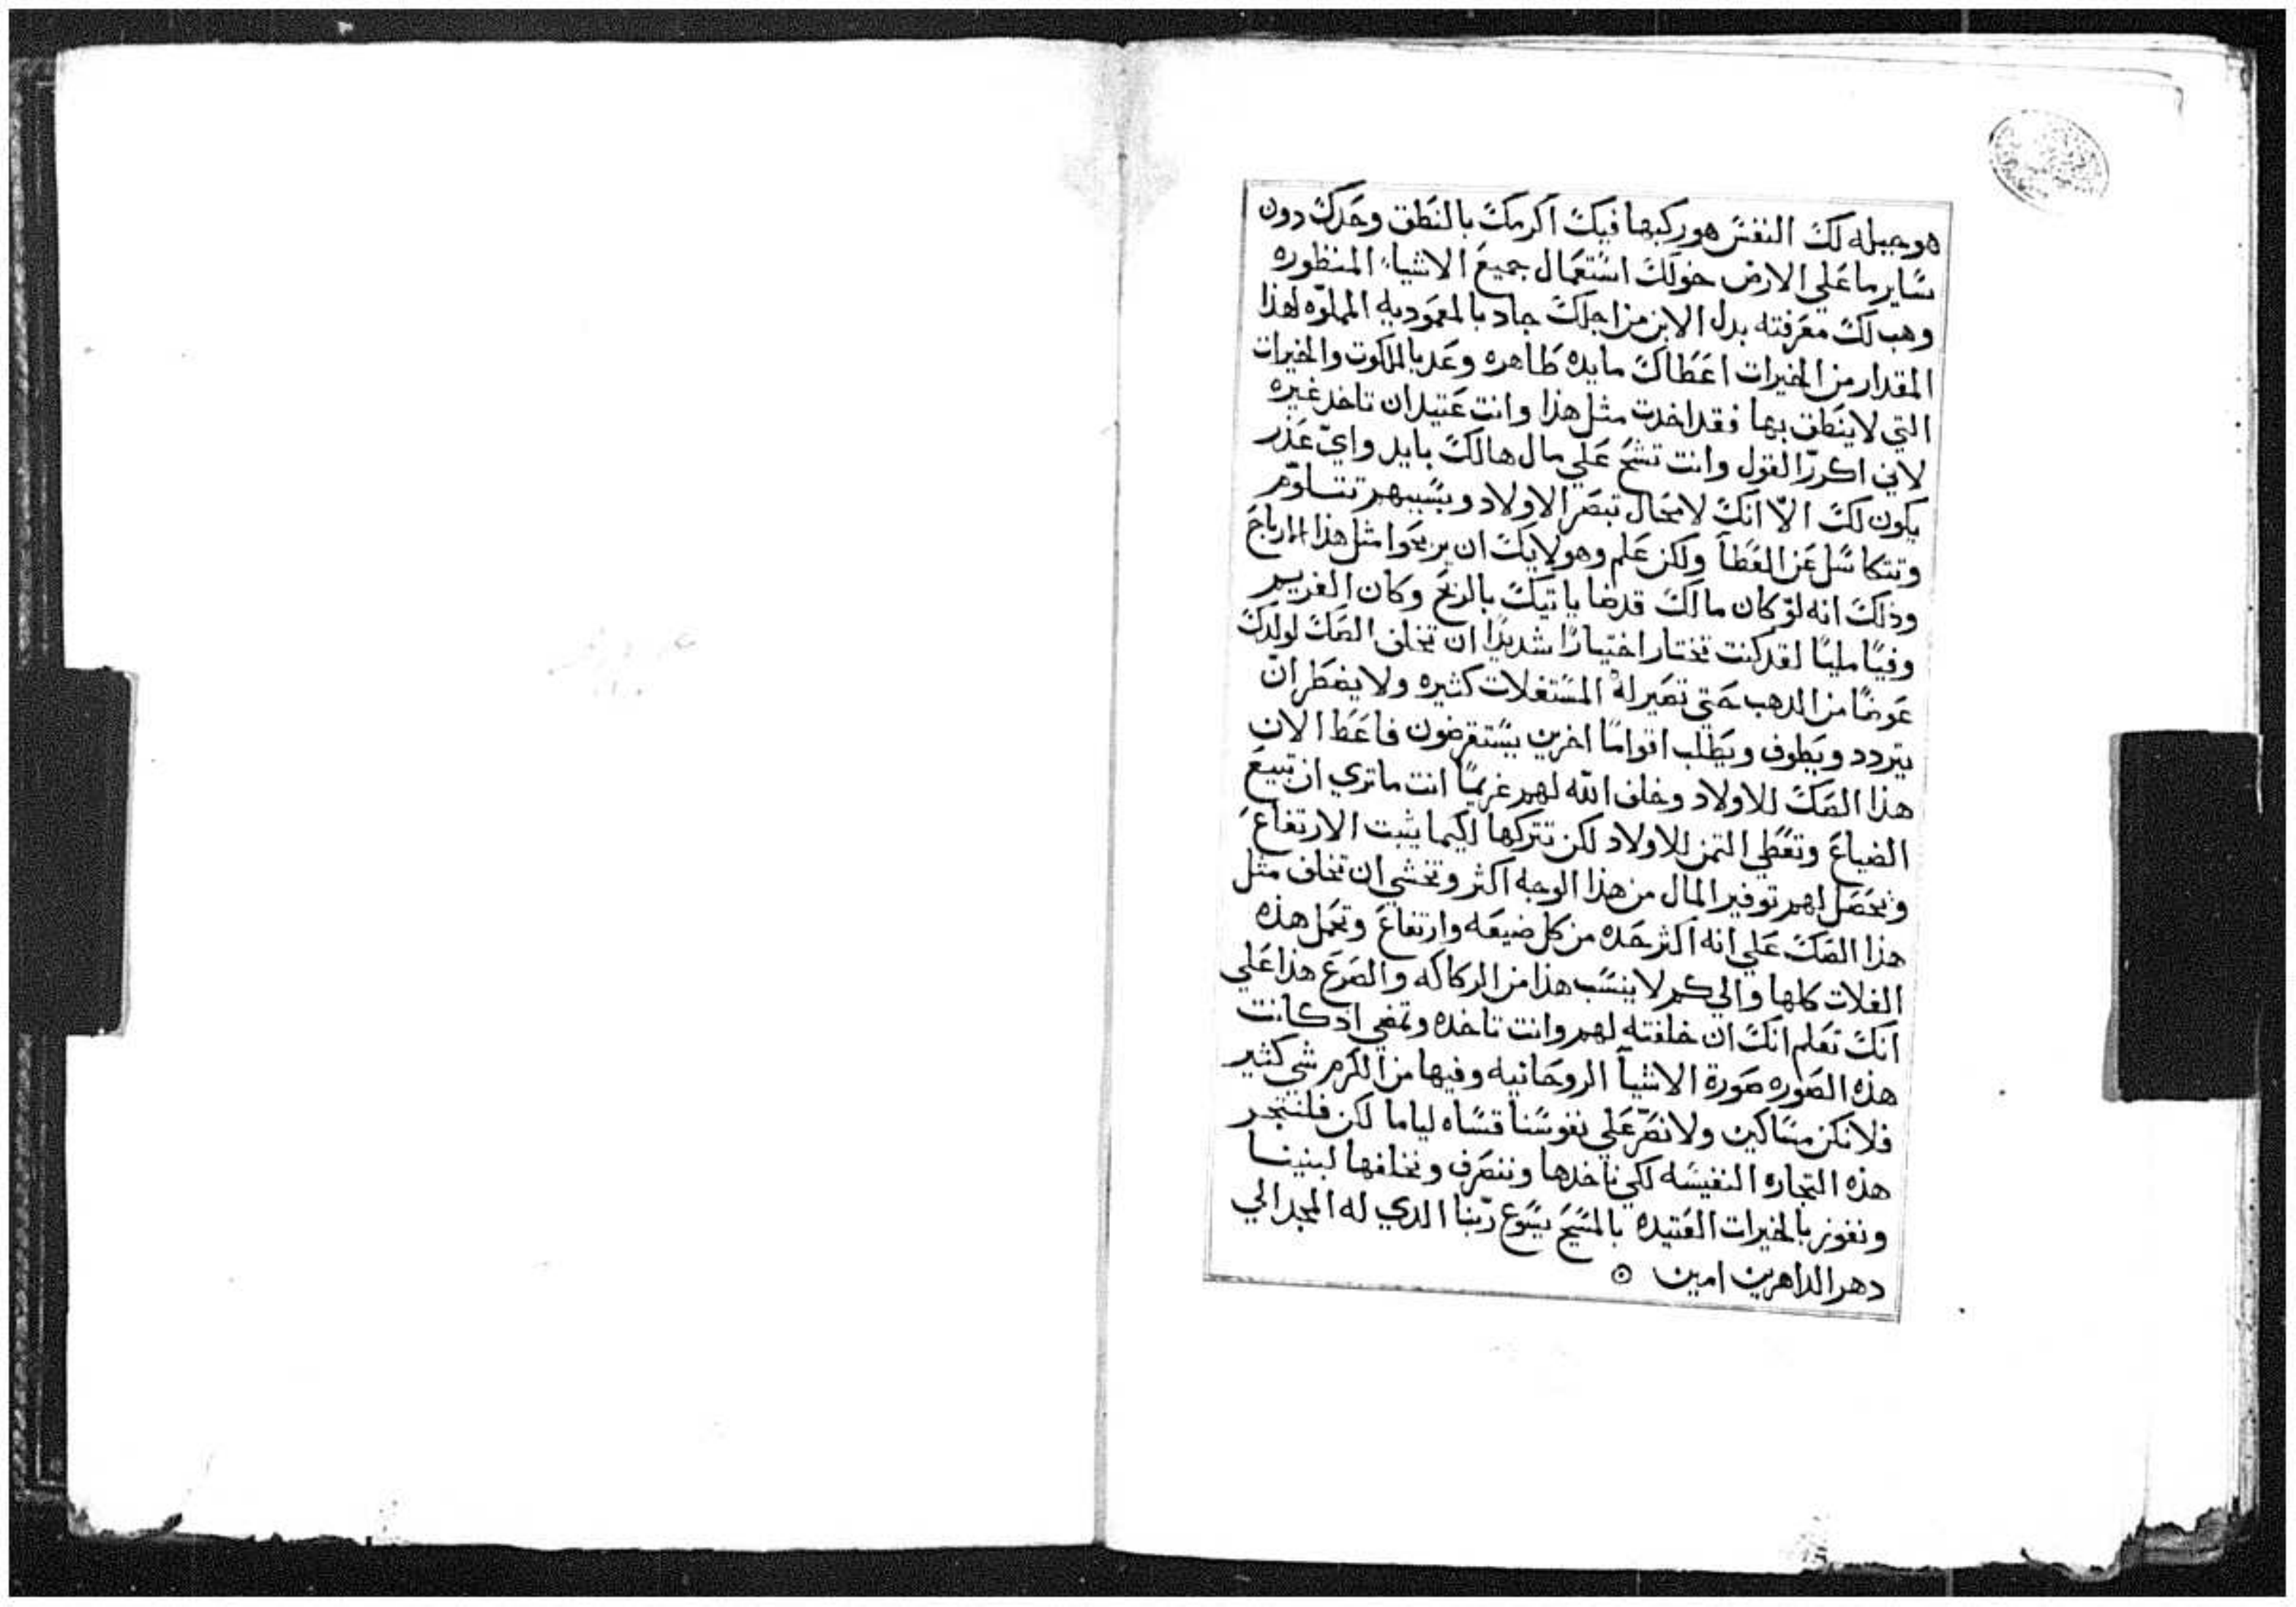 هو جبله لك النفس هو ركبها فيك اكرمك بالنطق وحدك دون
ساير ما علي الارض خولك استعمال جميع الاشياء المنظوره
وهب لك معرفته بدل الابن من اجلك جاد بالمعموديه المملوّه لهذا
المقدار من الخيرات اعطاك مايده طاهره وعد بالملكوت والخيرات
التي لا ينطق بها فقد اخدت مثل هذا وانت عتيد ان تاخد غيره
لاني اكررّ القول وانت تشح علي مال هالك بايد وايّ عذر
يكون لك الاّ انك لا محال تبصر الاولاد وبسببهم تتلوّم
وتتكاسل عن العطآ ولكن علم وهولايك ان يربحوا مثل هذا الارباح
وذلك انه لو كان مالك قرضا ياتيك بالربح وكان الغريم
وفيًا مليًا لقد كنت تختار اختيارًا شديدًا ان تخلف الصك لولدك
عوضًا من الدهب حتي تصير له المستغلات كثيره ولا يضطر ان
يتردد ويطوف ويطلب اقوامًا اخرين يستقرضون فاعط الان
هذا الصك للاولاد وخلف الله لهم غريمًا انت ما تري ان تبيع
الضياع وتعطي التمن للاولاد لكن تتركها لكيما يثبت الارتفاع
ويحصل لهم توفير المال من هذا الوجه اكثر وتخشي ان تخلف مثل
هذا الصك علي انه اكثر حده من كل ضيعه وارتفاع وتحمل هذه
الغلات كلها والي كم لا ينسب هذا من الركاكه والصرع هذا علي
انك تعلم انك ان خلفته لهم وانت تاخده وتمضي اد كانت
هذه الصوره صورة الاشيآ الروحانيه وفيها من الكرم شي كثير
فلا نكن مساكين ولا نصر علي نفوسنا قساه لياما لكن فلنتجر
هذه التجاره النفيسه لكي ناخدها وننصرف ونخلفها لبنينا
ونفوز بالخيرات العتيده بالمسيح يسوع ربّنا الدي له المجد الي
دهر الداهرين امين ⊙